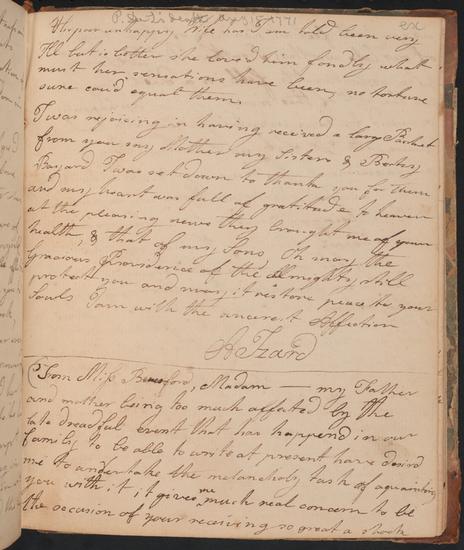 His poor unhappy wife has I am told been very
Ill but is better she loved him fondly what
must her sensations have been, no torture
sure could equal them.
I was rejoicing in having received a large Packet
from you my Mother my Sisters & Betsy
Bayard I was set down to thank you for them
and my heart was full of gratitude to heaven
at the pleasing news they brought me of your
health, & that of my Sons Oh may the
Gracious Providence of the Allmighty, still
protect you and may it restore peace to your
Souls I am with the sincerest Affection
A Izard
From Miss Beresford, Madam — my Father
and mother being too much affected by the
late dreadful event that has happend in our
family to be able to write at present have desired
me to undertake the melancholy task of aquainting
you with it, it gives me much real concern to be
the occasion of your receiving so great a shock